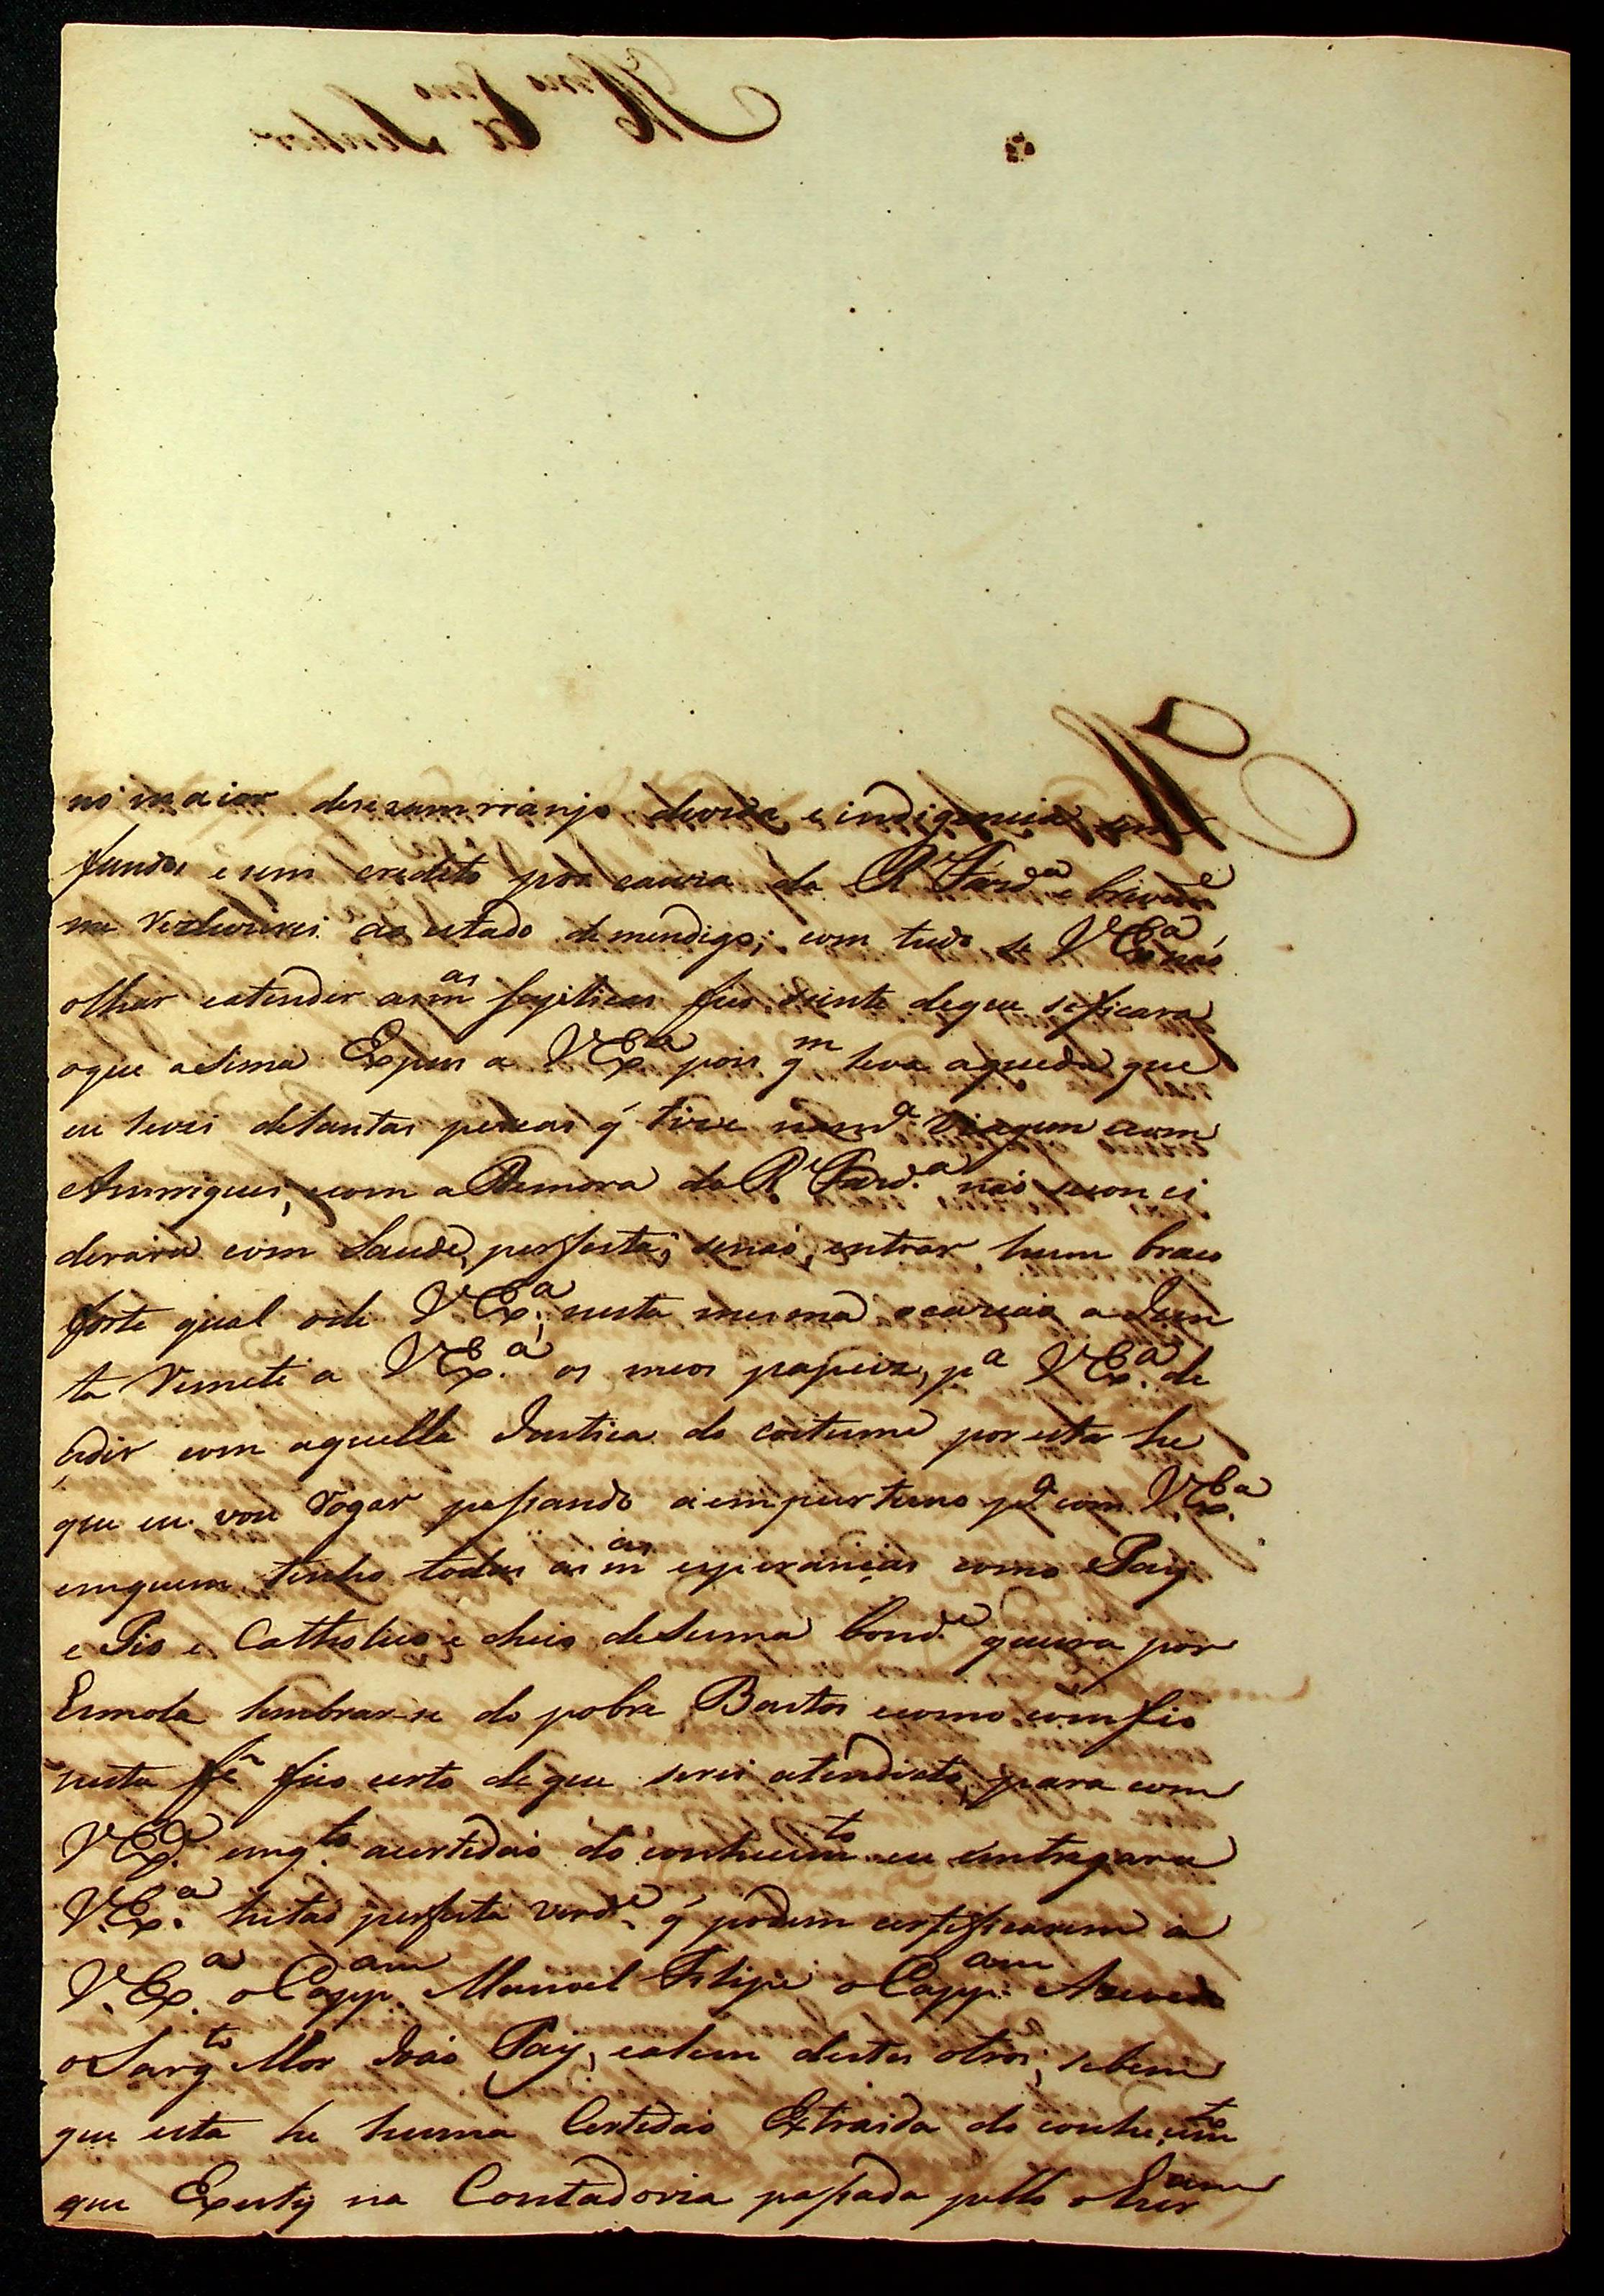 no maior desesumrranjo devida e indigencia sem
fundos e sem credito por cauza da R Fazda e brevde
me rezduzirei ao estado de mendigo; com tudo se VExa não
olhar eatender asmas suplicas fico siente deque seficara
oque asima Expus a VExa pois qm leva aqueda que
eu levei detantas percas q' tive nand.a viagem com
Amrrigues, ecom a Demora da Rl Fazd.a não seconci
derara com Saude perfeita; senão, entrar hum braco
forte qual ode VExa; nesta mesma ocazião a Jun
ta Remete a VEx.a os meos papeis, pa VEx.a de
cidir com aquella Justica do costume por esta he
que eu vou Rogar pasando a empurtuno pa com VEx.a
emquem tenho todas as mas esperancas como Pay
e Pio e Catholico e cheio deSuma bond.e queira por
Esmola lembrar-se do pobre Bastos ecomo comfio
nesta fé fico certo deque serei atendido, para com
VEx.a emq.to acertidão do conhecimto eu emtregara
V.Ex.a hetão perfeita verd.e q' podem certeficarem a
V.Ex.a o Capp.am Manoel Felipe o Capp.am Azevedo
o Sargto Mor João Pay, ealem destes otros; sebem
que esta he huma Certidão Extraida do conhecimto
que Exestiq na Contadoria pasada pello oEscram
Illmo Exmo Senhor